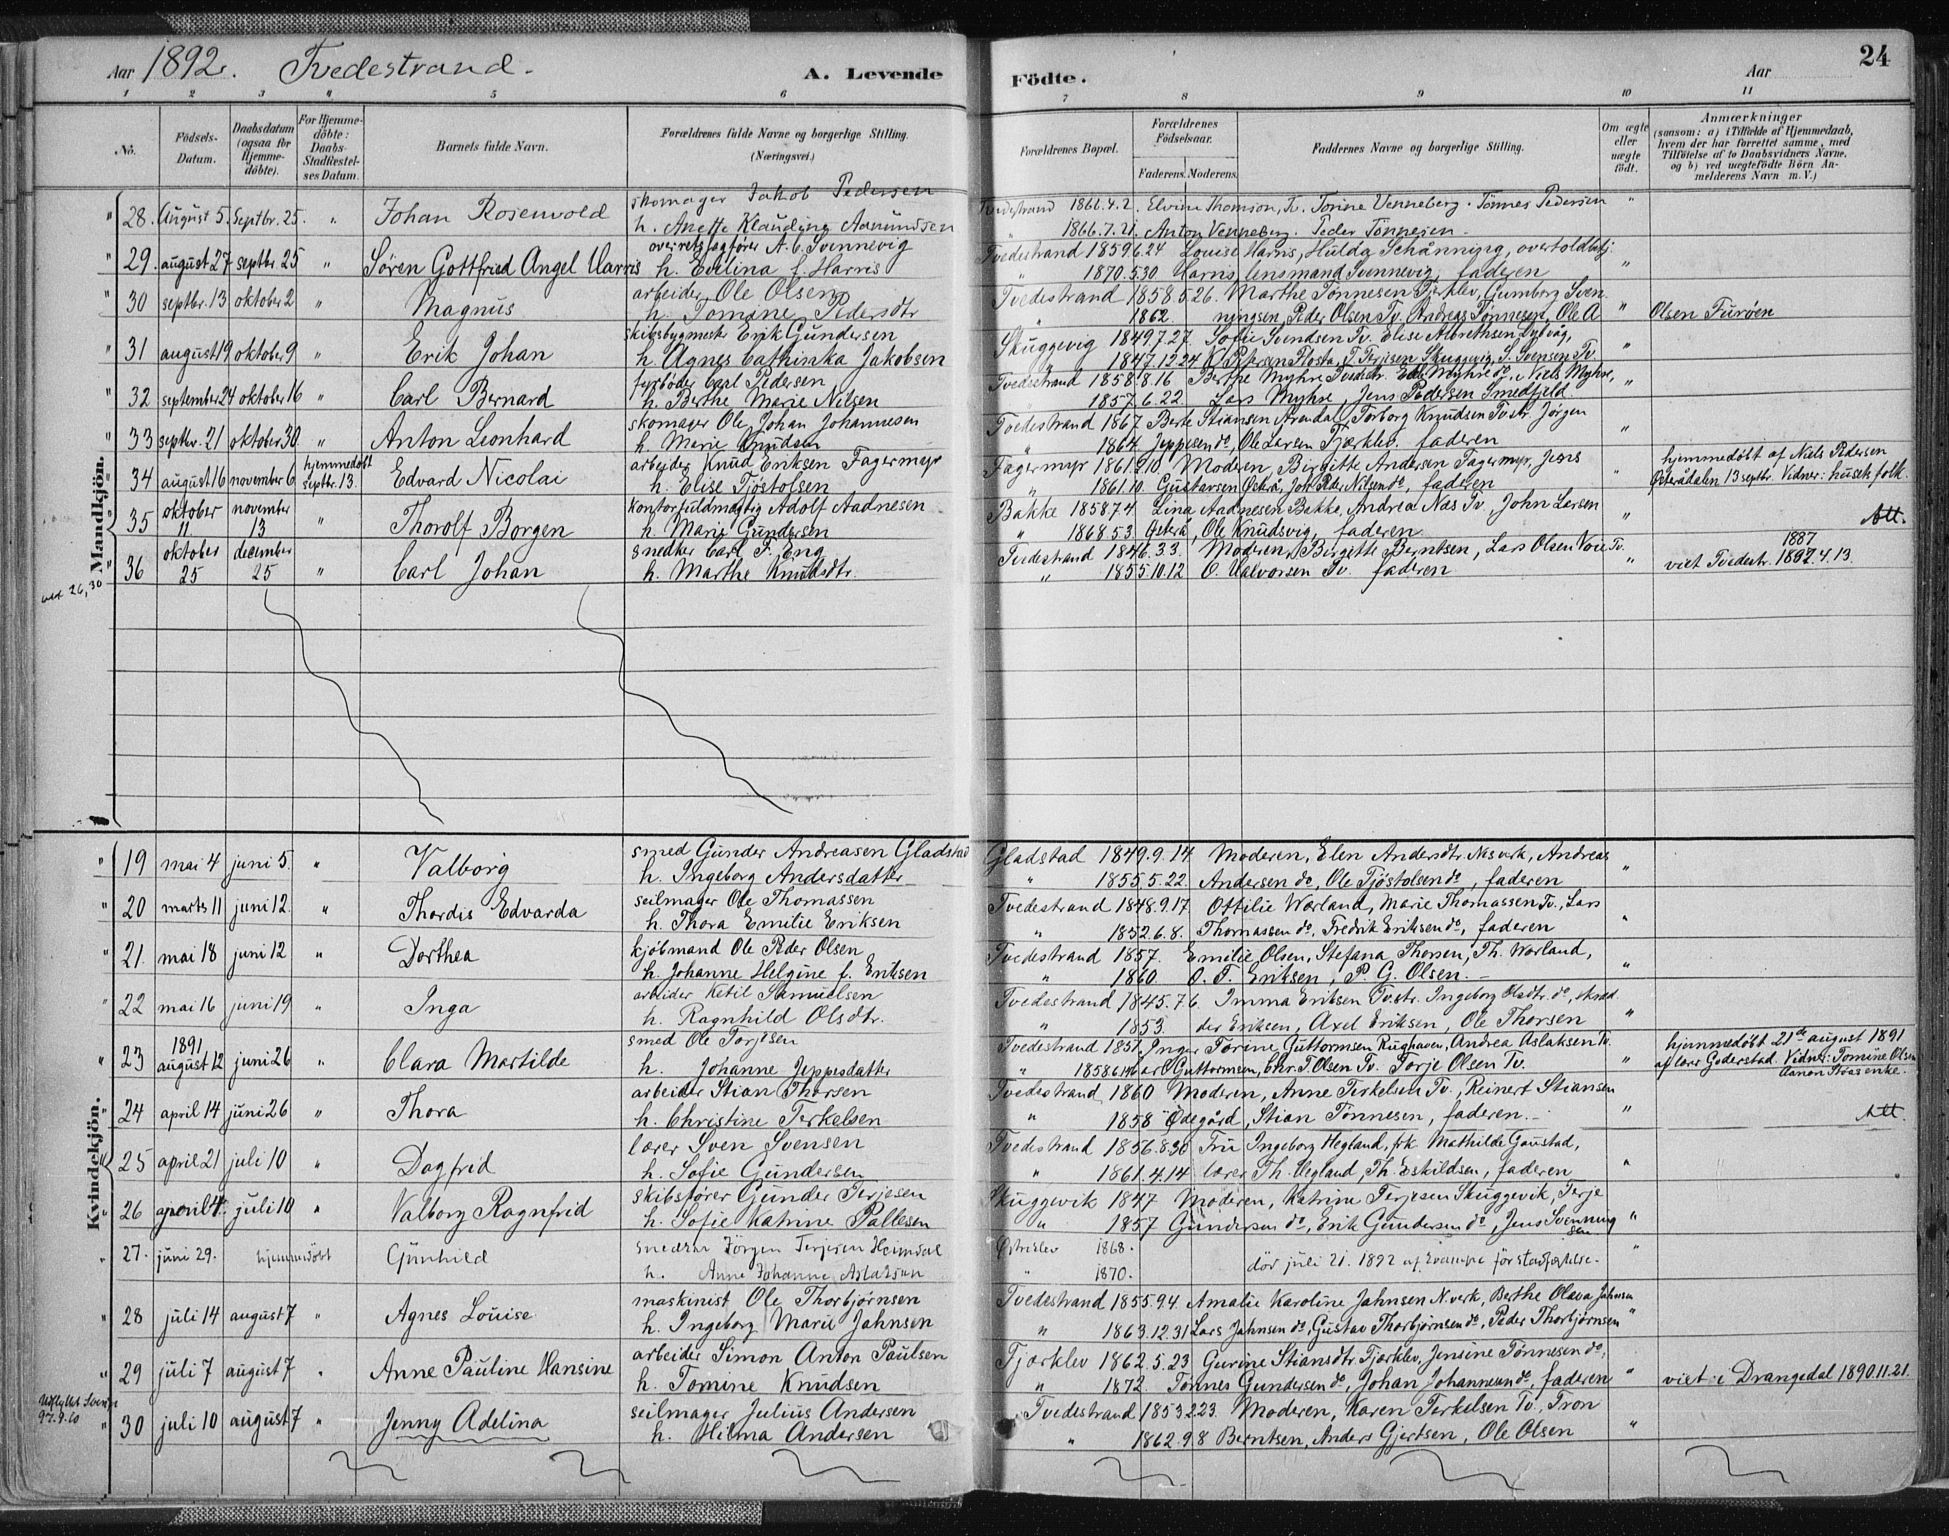 Aar 1892. Tvedestrand. A. Levende Födte. Aar 24
1 2 3 4 5 6 7 8 9 10 11
No. Födsels-Datum. Daabsdatum (ogsaa for Hjemmedöbte). For Hjemmedöbte: Daabs-Stadfæstelses Datum. Barnets fulde Navn. Forældrenes fulde Navne og borgerlige Stilling. (Næringsvei.) Forældrenes Bopæl. Forældrenes Födselsaar. Faderens. Moderens. Faddernes Navne og borgerlige Stilling. Om ægte eller uægte födt. Anmærkninger (saasom: a) i Tilfælde af Hjemmedaab, hvem der har forrettet samme, med Tilföielse af to Daabsvidners Navne, og b) ved uægtefödte Börn Anmelderens Navn m. V.)
Mandkjön.
28. August 5. Septbr. 25. " Johan Rosenvold skomager Jakob Pedersen Tvedestrand 1862.4.2. Elvine Thomson, Tv. Torine Venneberg. Tønnes Pedersen "
h. Anette Klaudine Aamundsen " 1866.7.21. Anton Venneberg. Peder Tønnesen.
29. august 27 septbr. 25 " Søren Gottfried Angel Harris overretssagfører A. C. Svennevig Tvedestrand 1859.6.24 Louise Harris, Hulda Schånning, overtoldbetj: "
h. Evelina f. Harris " 1870.5.30 Harris, lensmand Svennevig, faderen
30 septbr. 13 oktober 2 " Magnus arbeider Ole Olsen Tvedestrand 1858.5.26. Marthe Tønnesen Tjærklev, Gumborg Sven-
h. Tomine Pedersdtr " 1862. ningsen, Peder Olsen Tv. Andreas Tønnesen, Ole A " Olsen Furøen
31 august 19 oktober 9 " Erik Johan skibsbygmester Erik Gundersen Skuggevig 1849.7.27. Sofie Svendsen Tv. Elise Albrethsen Lyngør, "
h. Agnes Cathinka Jakobsen " 1847.12.24 K. Petersen Flosta, T. Terjesen Skuggevig, S. Svensen Tv.
32 september 24 oktober 16 " Carl Bernard fyrbøder Carl Pedersen Tvedestrand 1858.8.16 Berthe Myhre Tvedestr. Edle Myhre do, Niels Myhre, "
h. Berthe Marie Nilsen " 1857.6.22 Lars Myhre, Jens Pedersen Smedfuld.
33 septbr. 21 oktober 30 " Anton Leonhard skomager Ole Johan Johannesen Tvedestrand 1867 Berte Stiansen Arendal, Torborg Knudsen Tvstr Jørgen "
h. Marie Knudsen " 1864 Jeppesen do, Ole Larsen Tjærklev. faderen
34 august 16 november 6 hjemmedøbt septbr. 13. Edvard Nicolai arbeider Knud Eriksen Fagermyr Fagermyr 1861.2.10. Moderen, Birgitte Andersen Fagermyr, Jens " hjemmedøbt af Niels Pedersen
h. Elise Tjøstolsen " 1861.10. Gustavsen Østerå, Joh. Peder Nilsen do, faderen Østerådalen 13 septbr. Vidner: husets folk.
35 oktober 11 november 13 " Thorolf Borgen kontorfuldmægtig Adolf Aadnesen Bakke 1858.7.4 Lina Aadnesen Bakke, Andrea Næs Tv, John Larsen "
h. Marie Gundersen " 1868.5.3. Østerå, Ole Knudsvig, faderen Att.
36 oktober 25 december 25 " Carl Johan snedker Carl F. Eng Tvedestrand 1846.3.3. Moderen, Birgitte Berntsen, Lars Olsen Voie Tv. 1887
h. Marthe Knudsdtr. " 1855.10.12 O. Halvorsen Tv. faderen " viet Tvedestr. 1892.4.13.
26, 30
Kvindekjön.
19 mai 4 juni 5. " Valborg smed Gunder Andreasen Gladstad Gladstad 1849.9.14 Moderen, Elen Andersdtr. Næsverk, Andreas "
h. Ingeborg Andersdatter " 1855.5.22 Andersen do, Ole Tjøstolsen do, faderen
20 marts 11 juni 12. " Thordis Edvarda seilmager Ole Thomassen Tvedestrand 1848.9.17 Ottilie Worland, Marie Thomassen Tv., Lars "
h. Thora Emilie Eriksen " 1852.6.8. Thomassen do, Fredrik Eriksen do, faderen
21. mai 18 juni 12 " Dorthea kjøbmand Ole Peder Olsen Tvedestrand 1857. Emilie Olsen, Stefana Thorsen, Th. Worland, "
h. Johanne Helgine f. Eriksen " 1860 O. T. Eriksen, P. G. Olsen.
22 mai 16 juni 19 " Inga arbeider Ketil Samuelsen Tvedestrand 1845.7.6. Imma Eriksen Tv.str. Ingeborg Olsdtr. do, skræd "
h. Ragnhild Olsdtr. " 1853. der Eriksen, Axel Eriksen, Ole Thorsen
23 1891 august 12 juni 26 " Clara Martilde smed Ole Torjesen Tvedestrand 1857. Inger Torine Guttormsen, Andrea Aslaksen Tv. hjemmedøbt 21de august 1891
h. Johanne Jeppesdatter " 1858.6.14 Carl Guttormsen, Chr. T. Olsen Tv. Torje Olsen Tv. " af lærer Goderstad. Vidner: Tomine Olsen
24 april 14 juni 26 " Thora arbeider Stian Thorsen Tvedestrand 1860 Moderen, Anne Terkelsen Tv., Reinert Stiansen "
h. Christine Terkelsen " 1858 Ødegård, Stian Tønnesen, faderen. Att.
25 april 21 juli 10 " Dagfrid lærer Sven Svensen Tvedestrand 1856.8.30 Fru Ingeborg Hegland, frk Mathilde Goustad, "
h. Sofie Gundersen " 1861.4.14 lærer Th. Hegland, Th. Eskildsen, faderen
26 april 4. juli 10 " Valborg Ragnfrid skibsfører Gunder Terjesen Skuggevik 1847 Moderen, Katrine Terjesen Skuggevik, Terje
h. Sofie Katrine Pallesen " 1857 Gundersen do, Erik Gundersen do, Jens Svenningsen "
27. juni 29. hjemmedöbt Gunhild snedker Jörgen Terjesen Heimdal Østerklev 1868. "
h. Anne Johanne Aslaksen " 1870. död juli 21. 1892 af för stadfæstelse.
28 juli 14 august 7 " Agnes Louise maskinist Ole Thorbjørnsen Tvedestrand 1855.9.4. Amalie Karoline Jahnsen N.verk, Berthe Olava Jahnsen "
h. Ingeborg Marie Jahnsen " 1863.12.31 Lars Jahnsen do, Gustav Thorbjørnsen do, Peder Thorbjørnsen
29 juli 7 august 7 " Anne Pauline Hansine arbeider Simon Anton Paulsen Tjærklev 1862.5.23 Gurine Stiansdtr. Tjærklev, Jensine Tønnesen do, "
h. Tomine Knudsen " 1872. Tønnes Gundersen do, Johan Johannesen do, faderen viet i Drangedal 1890.11.21.
30 juli 10 august 7 " Jenny Adelina seilmager Julius Andersen Tvedestrand 1853.2.23. Moderen, Karen Terkelsen Tv. Tron "
h. Hilma Andersen " 1862.9.8 Berntsen, Anders Gjertsen, Ole Olsen